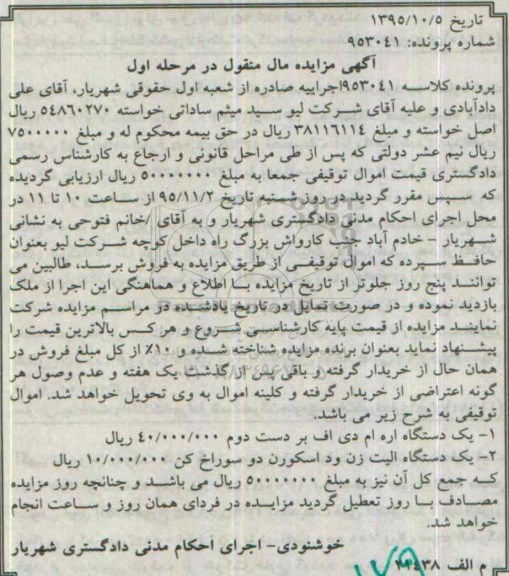 تاریخ ۱۳۹۵/۱۰/۵
شماره پرونده: ۹۵۳۰۴۱
آگهی مزایده مال منقول در مرحله اول
پرونده کلاسه ۹۵۳۰۴۱اجراییه صادره از شعبه اول حقوقی شهریار، آقای علی
دادآبادی و علیه آقای شرکت لیو سید میثم ساداتی خواسته ۵۴۸۶۰۲۷۰ ریال
اصل خواسته و مبلغ ۳۸۱۱۶۱۱۴ ریال در حق بیمه محکوم له و مبلغ ۷۵۰۰۰۰۰
ریال نیم عشر دولتی که پس از طی مراحل قانونی و ارجاع به کارشناس رسمی
دادگستری قیمت اموال توقیفی جمعا به مبلغ ۵۰۰۰۰۰۰۰ ریال ارزیابی گردیده
که سپس مقرر گردید در روز شنبه تاریخ ۹۵/۱۱/۲ از ساعت ۱۰ تا ۱۱ در
محل اجرای احکام مدنی دادگستری شهریار و به آقای /خانم فتوحی به نشانی
شهریار – خادم آباد جنب کارواش بزرگ راه داخل کوچه شرکت لیو بعنوان
حافظ سپرده که اموال توقیفی از طریق مزایده به فروش برسد، طالبین می
توانند پنج روز جلوتر از تاریخ مزایده با اطلاع و هماهنگی این اجرا از ملک
بازدید نموده و در صورت تمایل در تاریخ یادشده در مراسم مزایده شرکت
نمایند مزایده از قیمت پایه کارشناسی شروع و هر کس بالاترین قیمت را
پیشنهاد نماید بعنوان برنده مزایده شناخته شده و ۱۰٪ از کل مبلغ فروش در
همان حال از خریدار گرفته و باقی پس از گذشت یک هفته و عدم وصول هر
گونه اعتراضی از خریدار گرفته و کلینه اموال به وی تحویل خواهد شد. اموال
توقیفی به شرح زیر می باشد.
۱- یک دستگاه اره ام دی اف بر دست دوم ۴۰/۰۰۰/۰۰۰ ریال
۲- یک دستگاه الیت زن ود اسکوزن دو سوراخ کن ۱۰/۰۰۰/۰۰۰ ریال
که جمع کل آن نیز به مبلغ ۵۰۰۰۰۰۰۰ ریال می باشد و چنانچه روز مزایده
مصادف با روز تعطیل گردید مزایده در فردای همان روز و ساعت انجام
خواهد شد.
خوشنودی- اجرای احکام مدنی دادگستری شهریار
م الف ۲۱۴۳۸